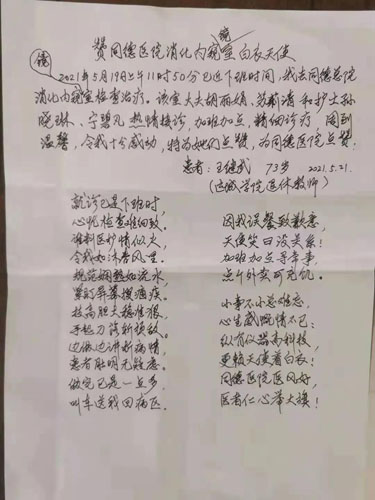 赞同德医院消化内窥镜室白衣天使
2021年5月19日上午11时50分已近下班时间,我去同德总院
消化内窥镜室检查治疗。该室大夫胡丽娟、苏莉清和护士孙
晓琳、宁碧凡热情接诊,加班加点,精细诊疗,周到
温馨,令我十分感动,特为她们点赞,为同德医院点赞!
患者:王继武 73岁 2021.5.21.
(运城学院退休教师)
就诊已是下班时,
心忧检查难细致。
谁料医护情似火,
令我如沐春风里。
规范娴熟如流水,
紧盯屏幕搜病疾。
技高胆大稳准狠,
手起刀
边做边讲析病情,
患者肚明无疑虑。
做完已是一点多,
叫车送我回病区。
因我误餐致歉意,
天使笑曰没关系!
加班加点寻常事,
点个外卖可充饥。
小事不小总难忘,
心生感慨情不已:
纵有仪器高科技,
更赖天使着白衣!
同德医院医风好,
医者仁心举大旗!